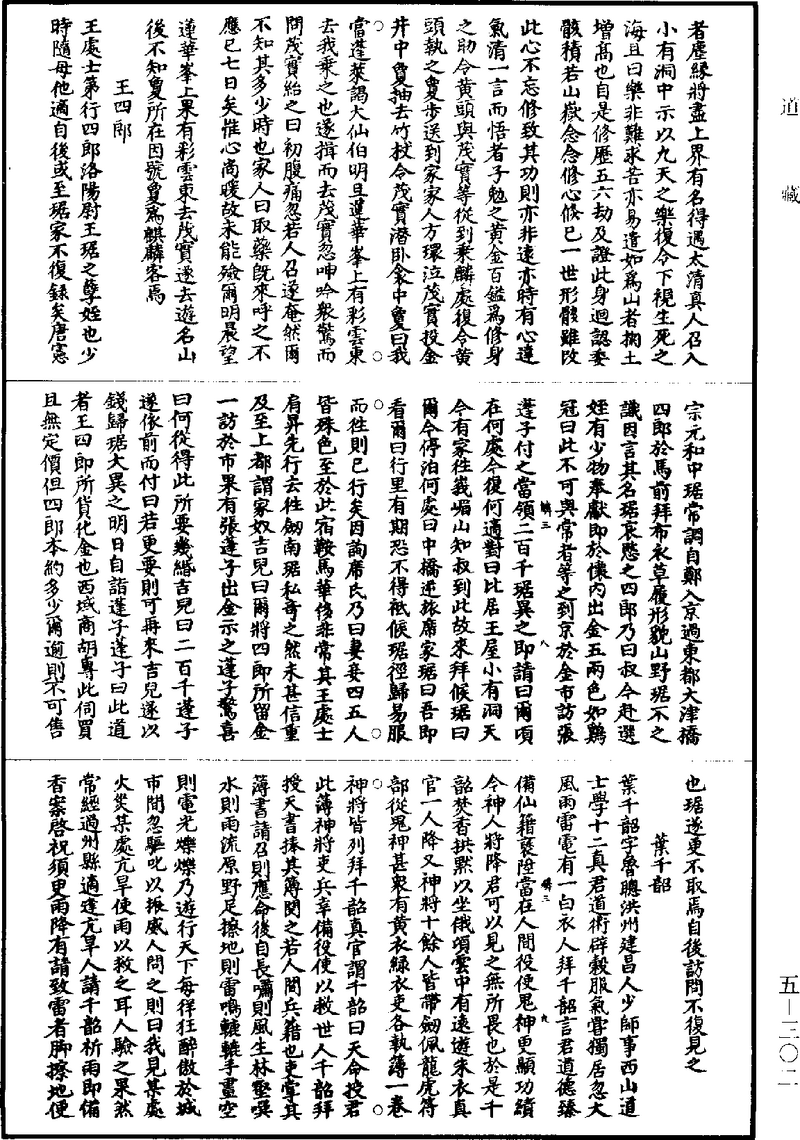 道藏
者塵緣將盡上界有名得遇太清真人召入
小有洞中示以九天之樂復令下視生死之
海且曰樂非難求苦亦易遣如爲山者掬土
增高也自是修歷五六劫及證此身迴認委
骸積若山嶽念念修心倏已一世形骸雖改
此心不忘修致其功則亦非遠亦時有心達
氣清一言而悟者子勉之黃金百鎰爲修身
之助令黃頭與茂實等從到乘麟處復令黃
頭執之夐步送到家家人方環泣茂實投金
井中夐抽去竹杖令茂實潛卧衾中夐曰我
當蓬萊謁大仙伯明旦蓮華峯上有彩雲東
去我乘之也遂揖而去茂實忽呻吟衆驚而
問茂實紿之曰初腹痛忽若人召遂奄然爾
不知其多少時也家人曰取藥旣來呼之不
應已七日矣惟心尚暖故未能殮爾明晨望
蓮華峯上果有彩雲東去茂實遂去遊名山
後不知夐所在因號夐爲麒麟客焉
王四郎
王處士第行四郎洛陽尉王琚之孽姪也少
時隨母他適自後或至琚家不復錄矣唐憲
宗元和中琚常調自鄭入京過東都大津橋
四郎於馬前拜布衣草履形貌山野琚不之
識因言其名琚哀愍之四郎乃曰叔今赴選
姪有少物奉獻即於懷內出金五兩色如鷄
冠曰此不可與常者等之到京於金市訪張
蓬子付之當領二百千琚異之即請曰爾頃
在何處今復何適對曰比居王屋小有洞天
今有家往峩嵋山知叔到此故來拜候琚曰
爾今停泊何處曰中橋逆旅席家琚曰吾即
看爾曰行里有期恐不得祗候琚徑歸易服
而往則已行矣因詢席氏乃曰妻妾四五人
皆殊色至於此宿鞍馬華侈非常其王處士
肩舁先行去往劍南琚私奇之然未甚信重
及至上都謂家奴吉兒曰爾將四郎所留金
一訪於市果有張蓬子出金示之蓬子驚喜
曰何從得此所要幾緡吉兒曰二百千蓬子
遂依前而付曰若更要則可再來吉兒遂以
錢歸琚大異之明日自詣蓬子蓬子曰此道
者王四郎所貨化金也西域商胡專此伺買
且無定價但四郎本約多少爾逾則不可售
也琚遂更不取焉自後訪問不復見之
葉千韶
葉千韶字魯聰洪州建昌人少師事西山道
士學十二真君道術辟穀服氣嘗獨居忽大
風雨雷電有一白衣人拜千韶言君道德臻
備仙籍褒陞當在人間役使鬼神更顯功績
今神人將降君可以見之無所畏也於是千
韶焚香拱默以坐俄頃雲中有遠遊朱衣真
官一人降又神將十餘人皆帶劍佩龍虎符
部從鬼神甚衆有黃衣綠衣吏各執簿一卷
神將皆列拜千韶真官謂千韶曰天命授君
此簿神將吏兵幸備役使以救世人千韶拜
授天書捧其簿閱之若人間兵籍也吏掌其
簿書請召則應命後自長嘯則風生林壑噀
水則雨流原野足擦地則雷鳴轆轆手畫空
則電光爍爍乃遊行天下每徉狂醉傲於城
市間忽驅叱以振威人問之則曰我見某處
火災某處亢旱使雨以救之耳人驗之果然
常經過州縣適逢亢旱人請千韶祈雨即備
香案啓祝須臾雨降有請致雷者脚擦地便
五－三〇二